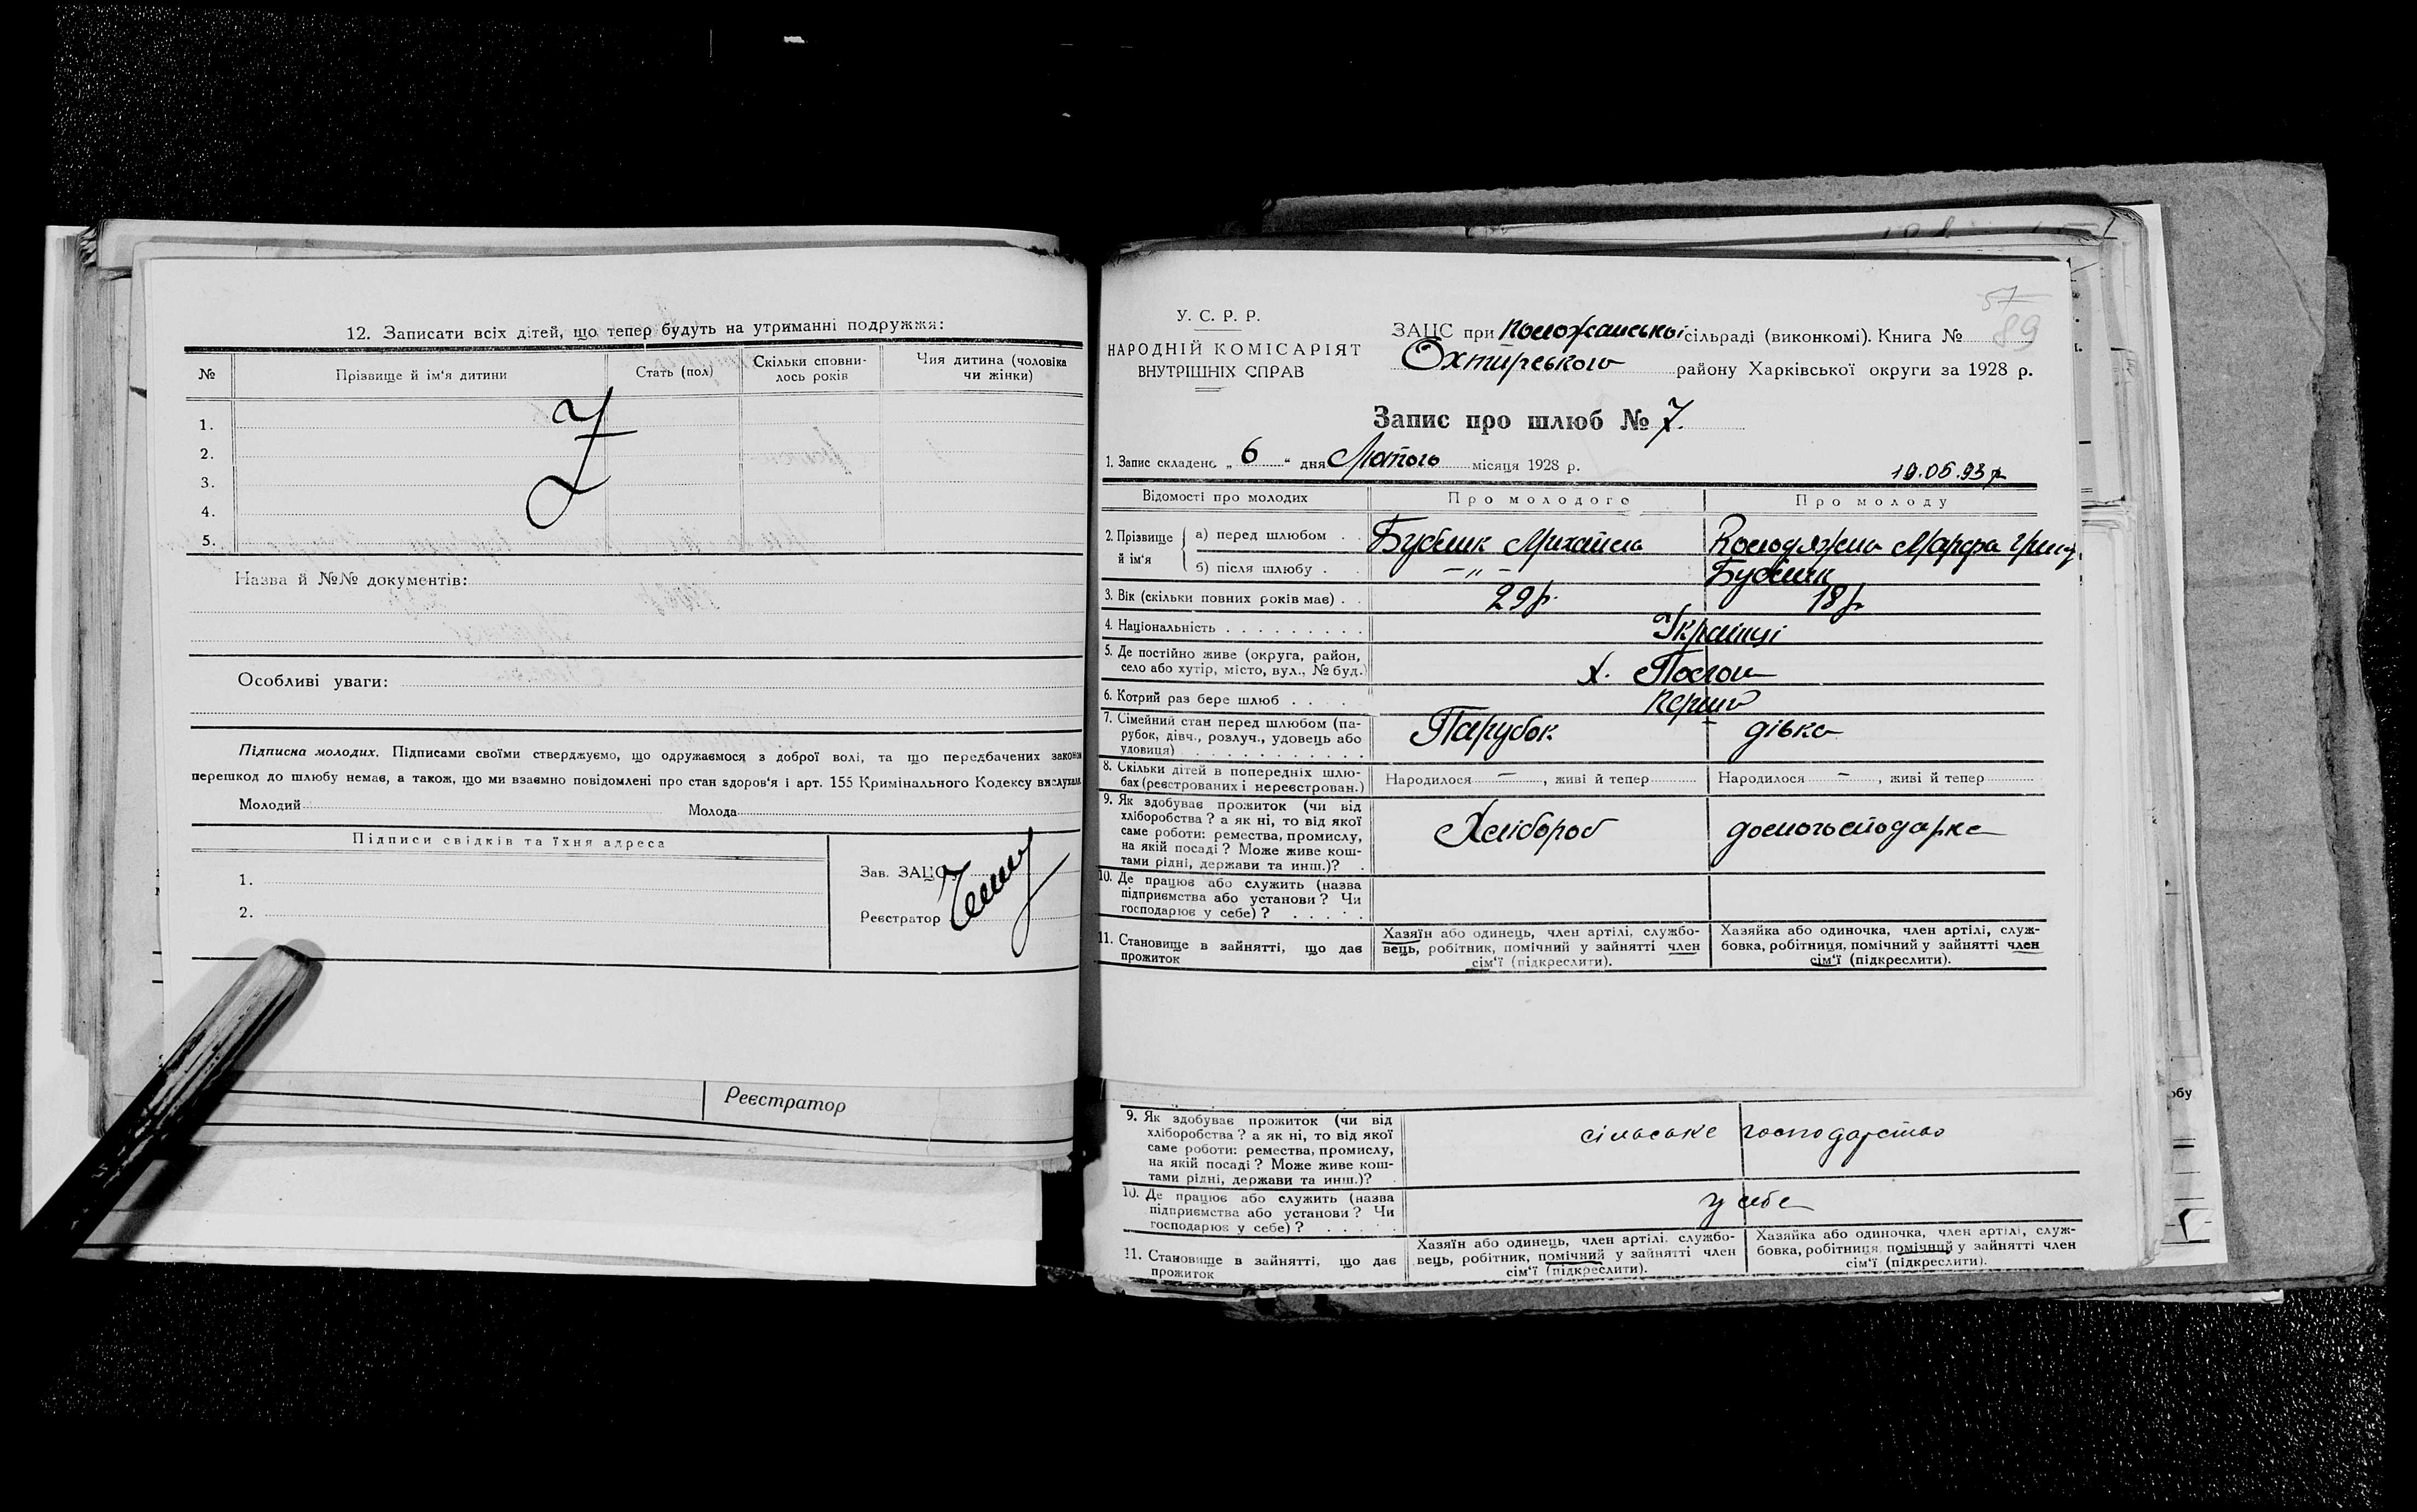 12. Записати всіх дітей, що тепер будуть на утриманні подружжя:
№ Прізвище й ім'я дитини Стать (пол) Скільки сповни-лось років Чия дитина (чоловіка чи жінки)
1.
2.
3.
4.
5.
Назва й №№ документів:
Особливі уваги:
Підписка молодих. Підписами своїми стверджуємо, що одружаємося з доброї волі, та що передбачених законом
перешкод до шлюбу немає, а також, що ми взаємно повідомлені про стан здоров'я і арт. 155 Кримінального Кодексу вислухали
Молодий Молода
Підписи свідків та їхня адреса
1.
2.
Зав. ЗАЦС
Реєстратор
Реєстратор
57
89
У. С. Р. Р.
НАРОДНІЙ КОМІСАРІЯТ
ВНУТРІШНІХ СПРАВ
ЗАЦС при сільраді (виконкомі). Книга №
Охтирського району Харківської округи за 1928 р.
Запис про шлюб № 7.
1. Запис складено „ 6 “ дня Лютого місяця 1928 р.
19.05.93р
Відомості про молодих Про молодого Про молоду
2. Прізвище й ім'я
а) перед шлюбом . . Михайло Марфа
б) після шлюбу . — „ —
3. Вік (скільки повних років має) . . 29 р. 18 р
4. Національність . . . . . . . . . Українці
5. Де постійно живе (округа, район,
село або хутір, місто, вул., № буд.) х.
6. Котрий раз бере шлюб . . . . перший
7. Сімейний стан перед шлюбом (па-
рубок, дівч., розлуч., удовець або
удовиця) . . . . . . . . . . . .
Парубок дівка
8. Скільки дітей в попередніх шлю-
бах (реєстрованих і нереєстрован.)
Народилося — , живі й тепер Народилося — , живі й тепер
9. Як здобуває прожиток (чи від
хліборобства? а як ні, то від якої
саме роботи: ремества, промислу,
на якій посаді? Може живе кош-
тами рідні, держави та инш.)? .
Хлібороб домогосподарка
10. Де працює або служить (назва
підприємства або установи? Чи
господарює у себе)? . . . . .
11. Становище в зайнятті, що дає
прожиток
Хазяїн або одинець, член артілі, службо-
вець, робітник, помічний у зайнятті член
сім'ї (підкреслити).
Хазяйка або одиночка, член артілі, служ-
бовка, робітниця, помічний у зайнятті член
сім'ї (підкреслити).
9. Як здобуває прожиток (чи від
хліборобства? а як ні, то від якої
саме роботи: ремества, промислу,
на якій посаді? Може живе кош-
тами рідні, держави та инш.)? .
сільське господарство
10. Де працює або служить (назва
підприємства або установи? Чи
господарює у себе)? . . . . .
у себе
11. Становище в зайнятті, що дає
прожиток
Хазяїн або одинець, член артілі, службо-
вець, робітник, помічний у зайнятті член
сім'ї (підкреслити).
Хазяйка або одиночка, член артілі, служ-
бовка, робітниця, помічний у зайнятті член
сім'ї (підкреслити).